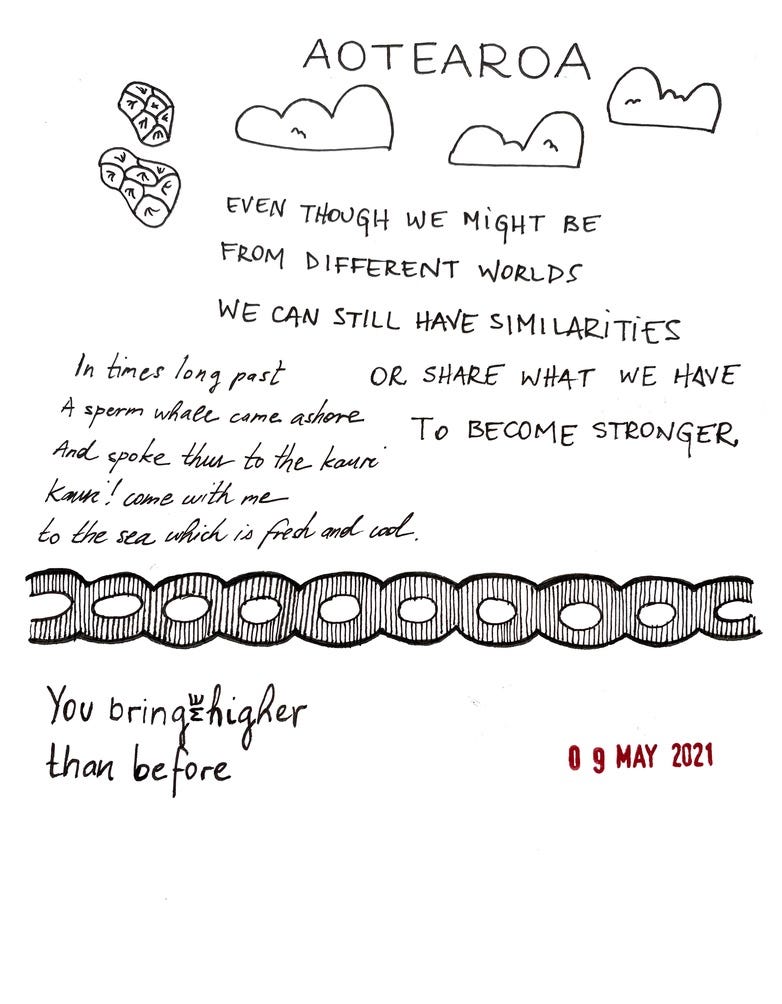 AOTEAROA
EVEN THOUGH WE MiGHT BE
FROM DIFFERENT WORLDS
WE CAN STILL HAVE SIMILARITIES
OR SHARE WHAT WE HAVE
TO BECOME STRONGER.
In times long past
A sperm whale came ashore
And spoke thus to the kauri
Kauri! come with me
to the sea which is fresh and cool.
You bring ME higher
than before
09 MAY 2021